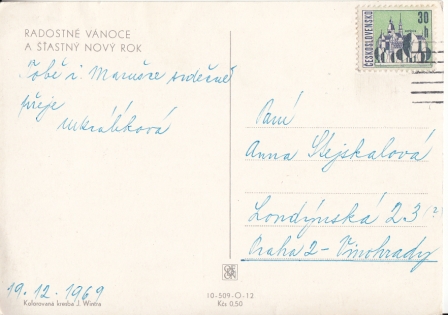 RADOSTNÉ VÁNOCE
A ŠŤASTNÝ NOVÝ ROK
Tobě i Mamince srdečně
přeje
19.12.1969
Kolorovaná kresba J. Wintra
ČESKOSLOVENSKO
30 h
Paní
Anna Stejskalová
Londýnská 23 (?)
Praha 2 - Vinohrady
10-509-O-12
Kčs 0,50